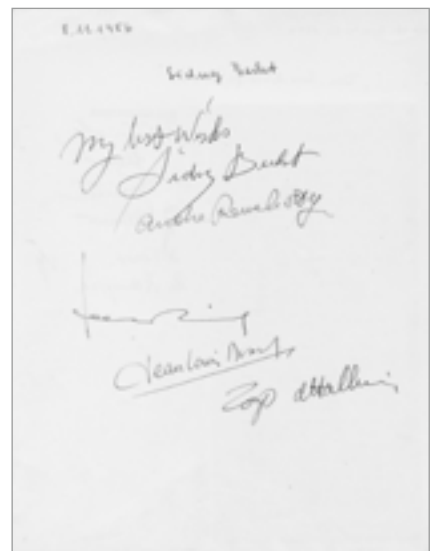 Sidney Bechet
My best Wishs
Sidney Bechet
André Reweliotty
Jean Louis Durand
Zozo d'Halluin